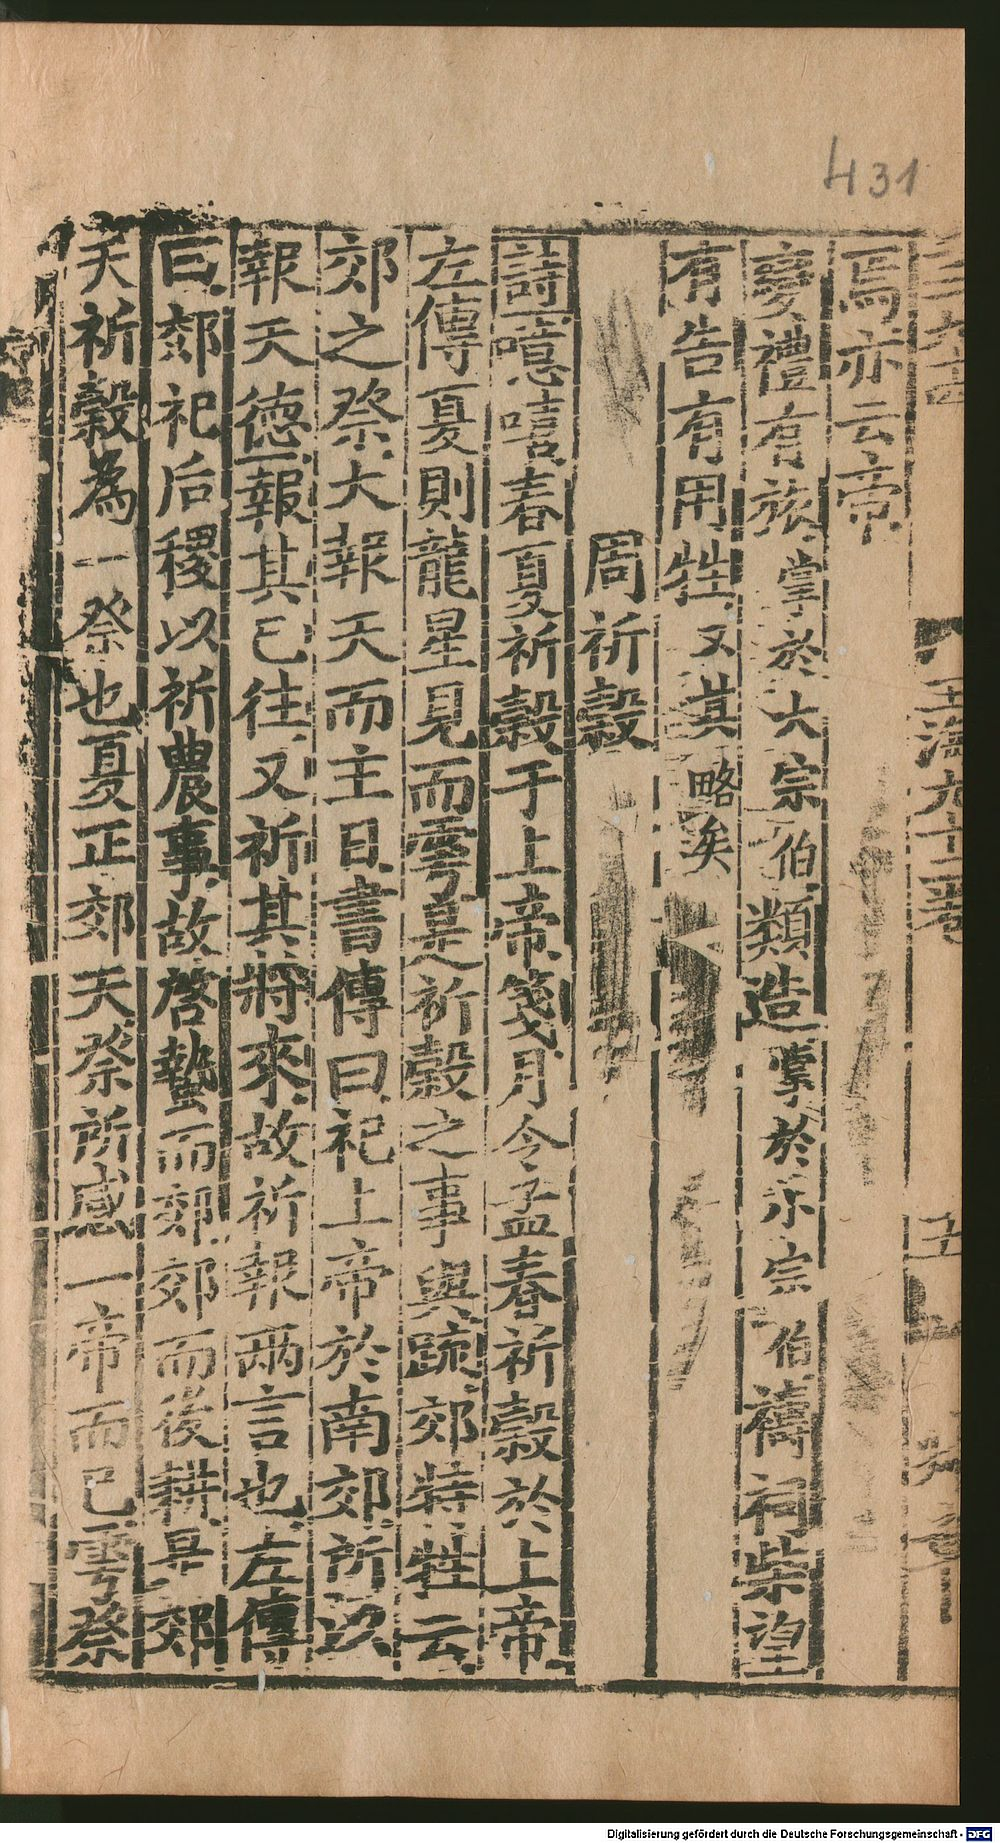 431
玉海九十二卷
焉亦云帝
變禮有旅掌於大宗伯類造掌於小宗伯禱祠柴望
有告有用牲又其略矣
周祈穀
詩噫嘻春夏祈穀于上帝箋月令孟春祈穀於上帝
左傳夏則龍星見而雩是祈穀之事與疏郊特牲云
郊之祭大報天而主日書傳曰祀上帝於南郊所以
報天德報其已往又祈其將來故祈報兩言也左傳
曰郊祀后稷以祈農事故啓蟄而郊郊而後耕是郊
天祈穀為一祭也夏正郊天祭所感一帝而已雩祭
Digitalisierung gefördert durch die Deutsche Forschungsgemeinschaft - DFG